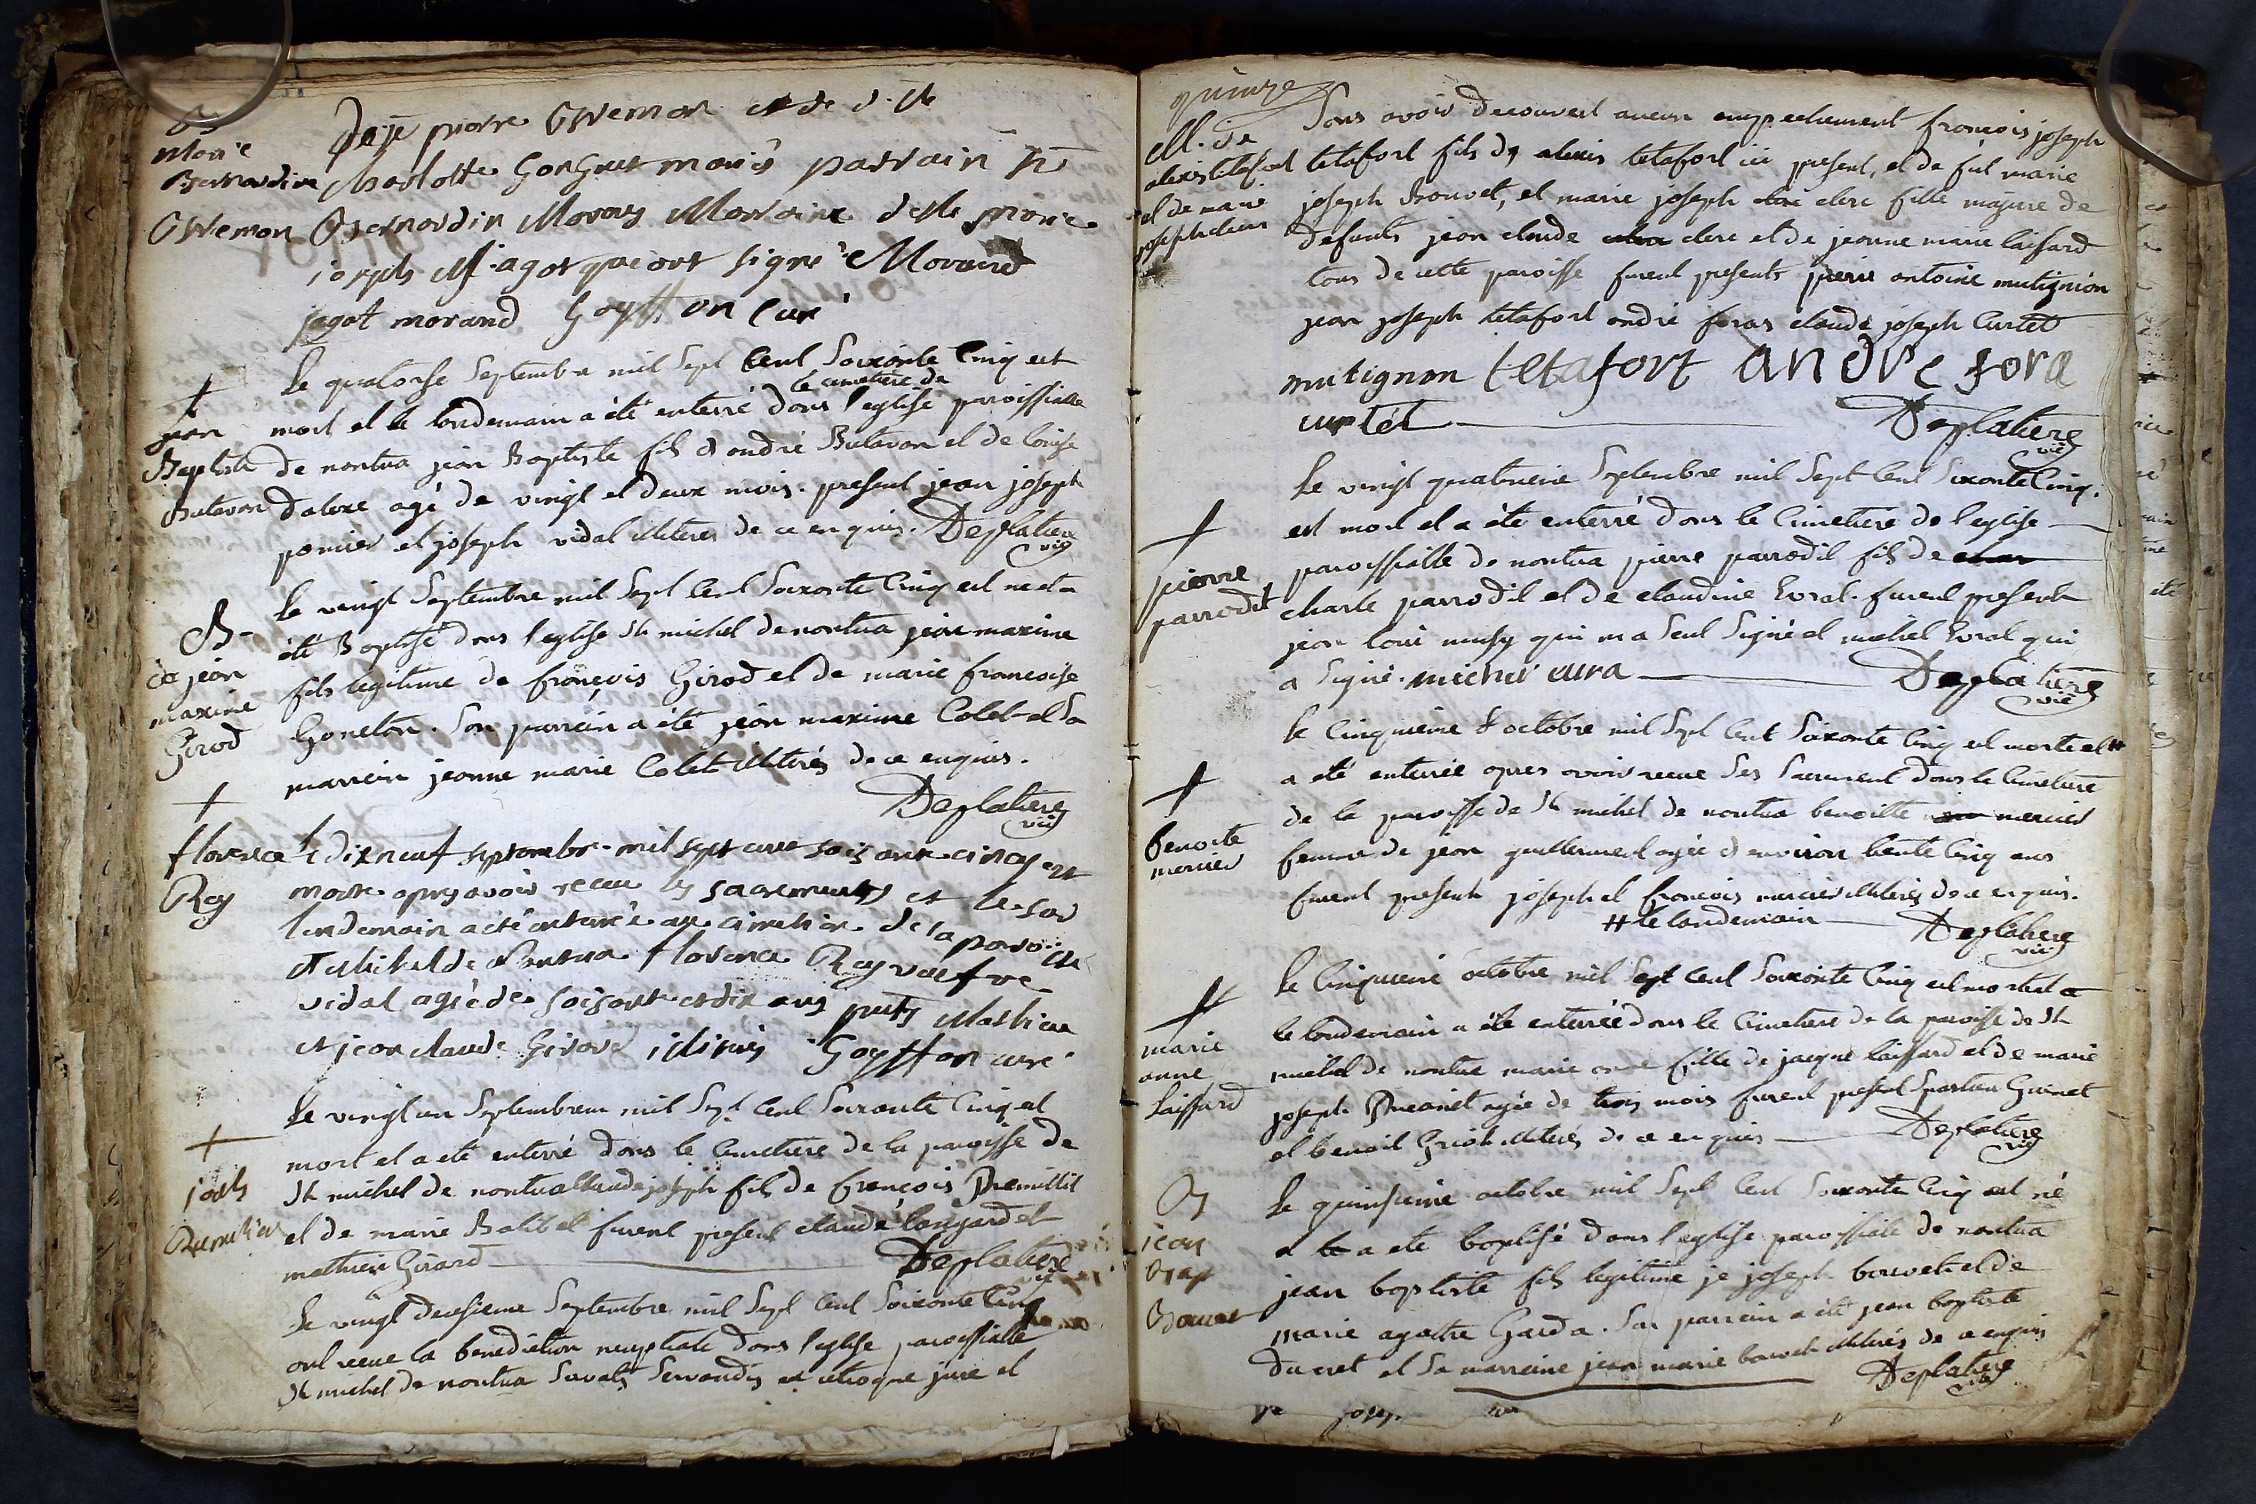 de pierre et de d. lle
marie
Bernardine charlotte mariés parrain
Bernardin Morand Marraine delle marie
joseph jagot qui ont signé Morand
jagot morand Goyffon curé
Le quatorse Septembre mil Sept Cent Soixante Cinq est
mort et le landemain a été enterré dans le cimetiere de l'eglise paroissialle
jean
Baptiste
Butavan
de nantua jean Baptiste fils d'andré Butavan et de louise
agé de vingt et deux mois. present jean joseph
et joseph vidal illiterés de ce enquis. Deplatiere
vic
Le vingt Septembre mil Sept Cent Soixante Cinq est né et a
B.
de jean
maxime
Girod
été Baptisé dans l'eglise St michel de nantua jean maxime
fils legitime de françois Girod et de marie francoise
Goneton. Son parrain a été jean maxime Colet et Sa
marrein jeanne marie Colet illiterés de ce enquis.
Deplatiere
vic
florence
Rey
le dix neuf septembre mil sept cent soisante cinq est
morte apres avoir receu les sacrements et le
lendemain a été enterrée au cimetiere de la paroisse
St Michel de Nantua florence Rey vefve
vidal agée de soisante et dix ans pnts Mathieu
et jean claude Girard illitrés Goyffon curé
Le vingt un Septembre mil Sept Cent Soixante Cinq est
mort et a eté enterré dans le Cimetiere de la paroisse de
St michel de nantua Claude joseph fils de françois
et de marie furent present claude et
mathieu Girard
Deplatiere
vic
Le vingt deusieme Septembre mil Sept Cent Soixante Cinq
ont recue la benediction nuptiale dans l'eglise paroissialle
St michel de nantua Servandis et utroque jure et
quinze
M. de
alexis tetafort
et de marie
joseph clerc
Sans avoir decouvert aucun empechement francois joseph
tetafort fils de alexis tetafort ici present, et de fut marie
joseph et marie joseph clerc fille majure de
defunts jean claude clerc et de jeanne marie laissard
tous de cette paroisse furent presents pierre antoine mutignion
jean joseph tetafort andré foras claude joseph Curtet
mutignon tetafort andre fora
curtet
Deplatiere
vic
Le vingt quatrieme Septembre mil Sept Cent Soixante Cinq.
est mort et a été enterré dans le Cimetiere de l'eglise
pierre
parrodit
paroissialle de nantua pierre parrodil fils de
charle parrodil et de claudine Evral. furent present
jean loui musy qui n'a Seul Signé et michel Evral qui
a Signé. michel eura
Deplatiere
vic
Le Cinquieme d'octobre mil Sept Cent Soixante Cinq est morte et #
a eté enterrée apres avoir receue Ses Sacrement dans le Cimetiere
benoite
mercier
de la paroisse de St michel de nantua benoitte mercier
femme de jean guillermet agée d'environ trente Cinq ans
furent present joseph et francois mercier illiterés de ce enquis.
# le landemain
Deplatiere
vic
Le Cinquieme octobre mil Sept Cent Soixante Cinq est morte et
marie
anne
Laissard
le landemain a été enterrée dans le Cimetiere de la paroisse de St
michel de nantua marie anne fille de jacque laissard et de marie
joseph agée de trois mois furent present Guinet
et benoit illiterés de ce enquis
Deplatiere
vic
Le quinsieme octobre mil Sept Cent Soixante Cinq est né
jean
Bap
et a eté baptisé dans l'eglise paroissiale de nantua
jean baptiste fils legitime de joseph et de
marie agathe Garda. Son parrain a été jean baptiste
ducret et Sa marreine jean marie illiterés de ce enquis
Deplatiere
vic